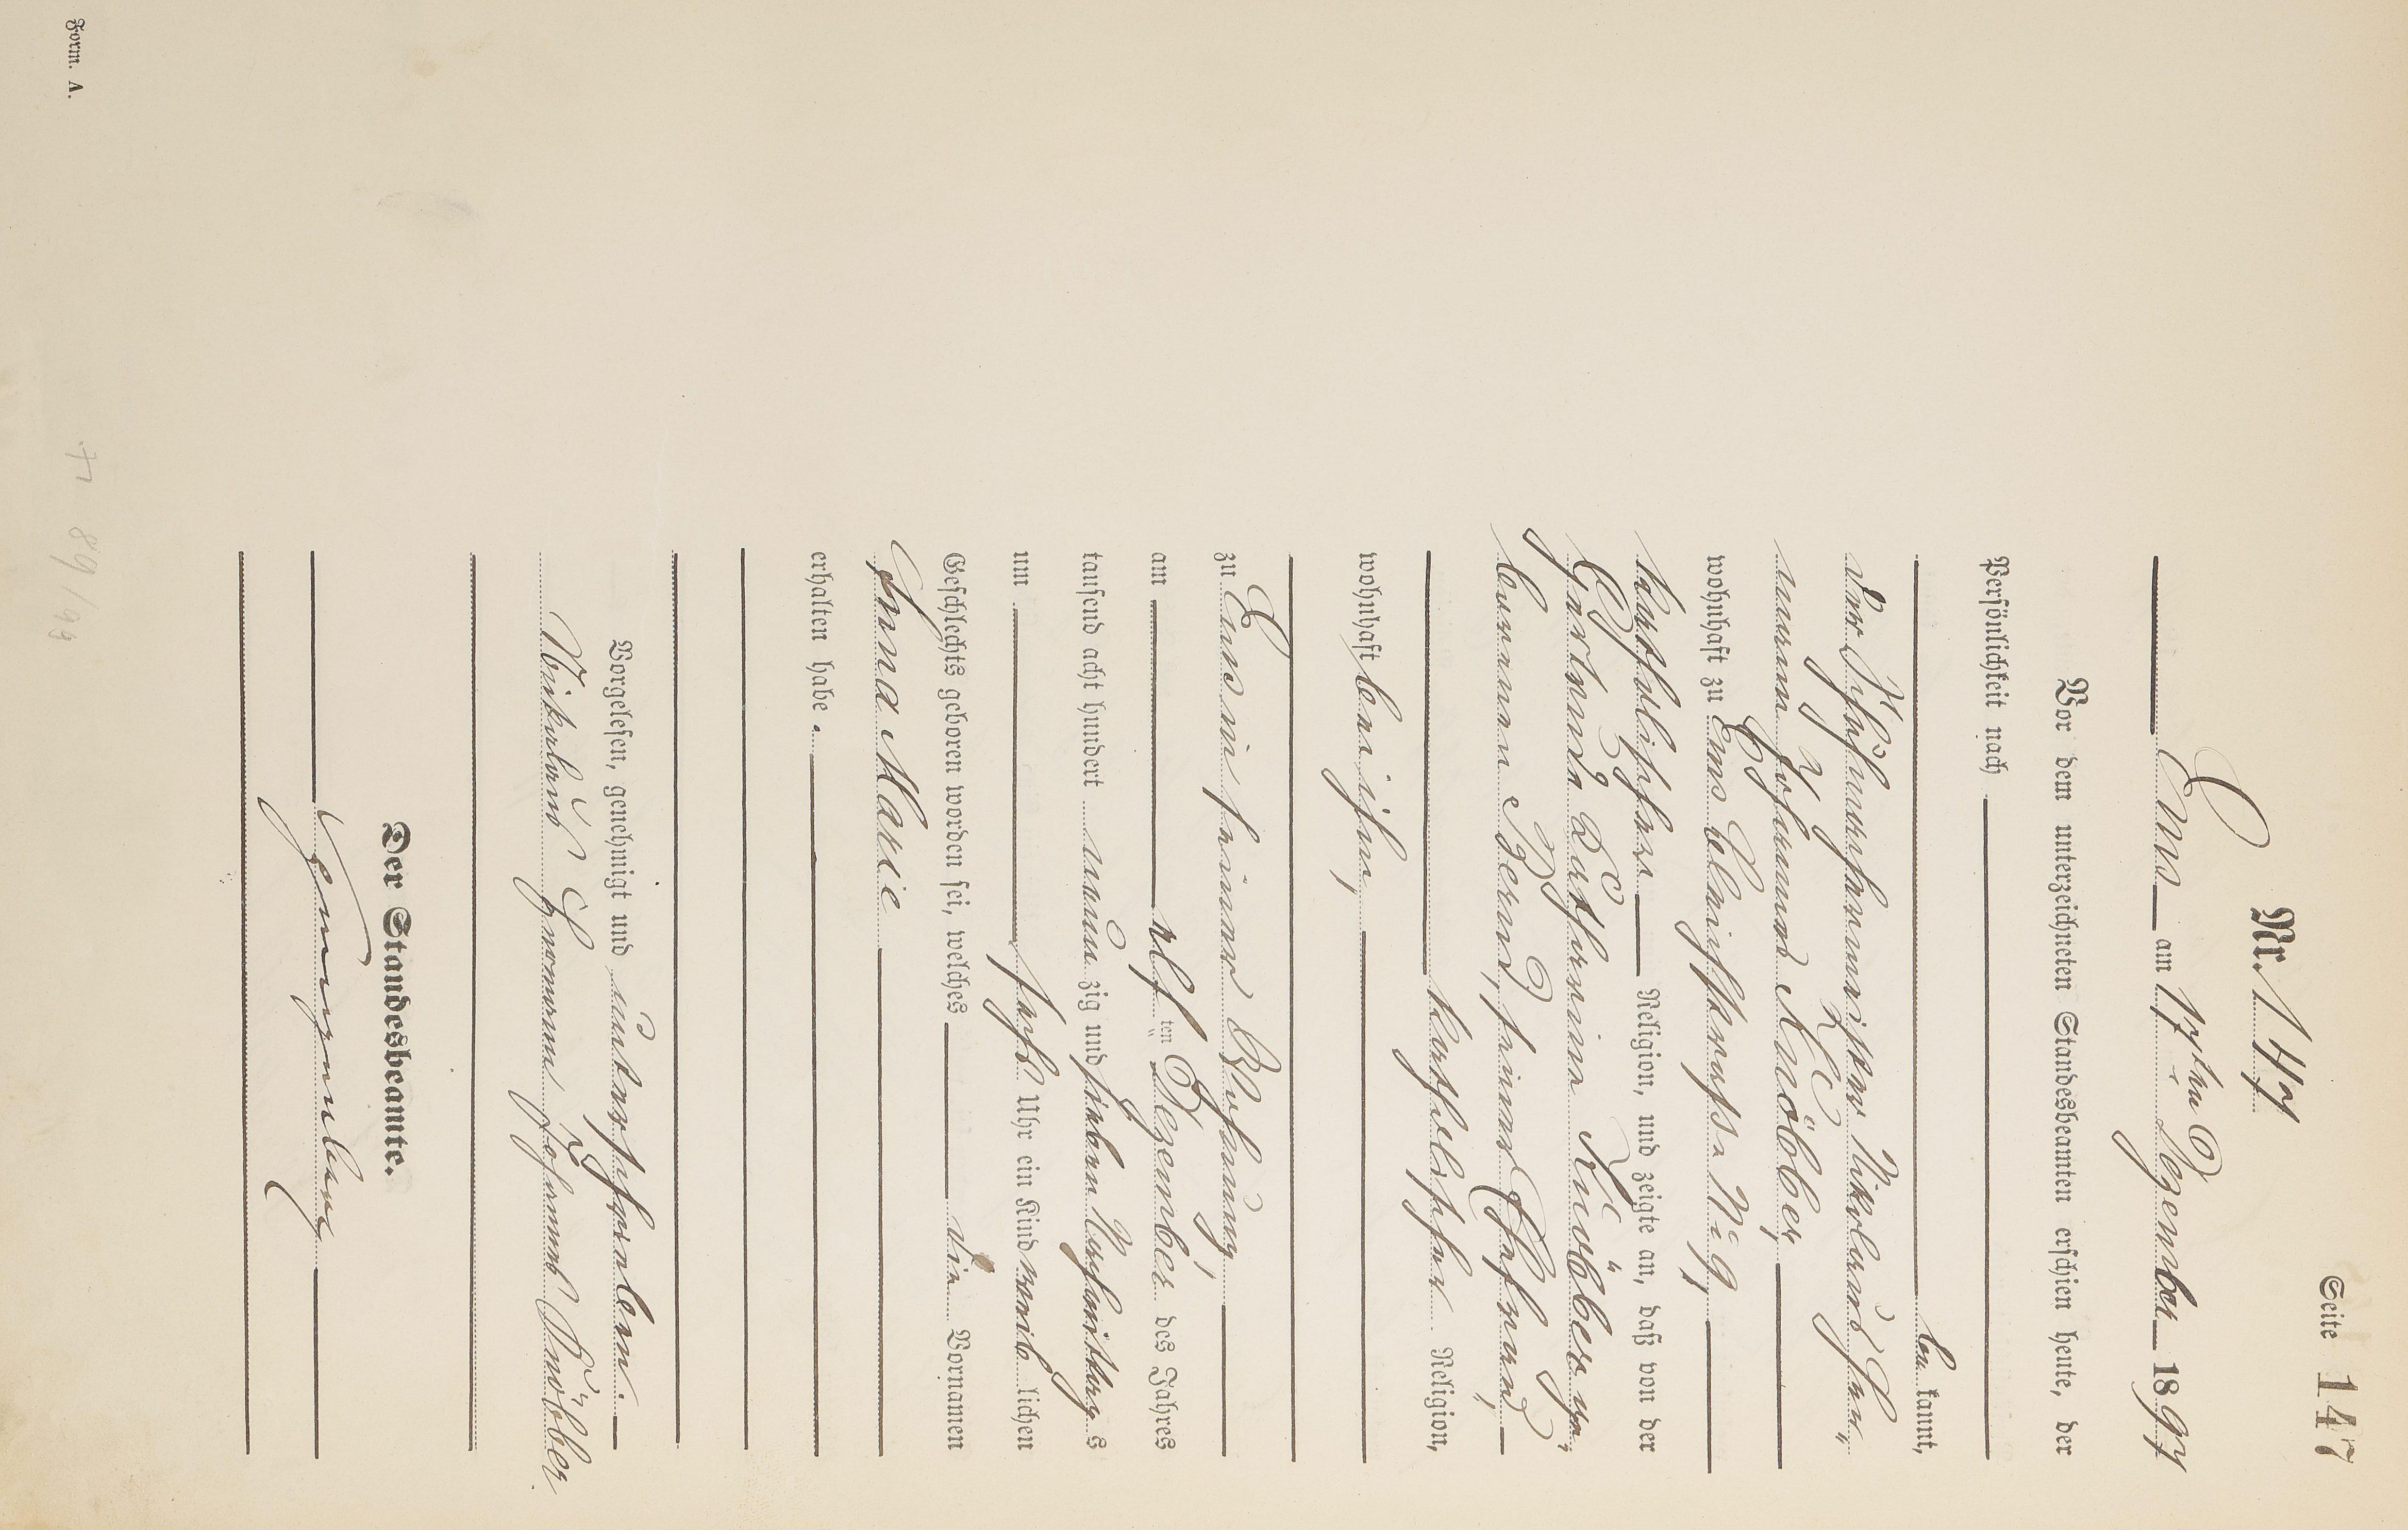 Seite 147
Nr. 147
Ems am 17ten Dezember 1897
Vor dem unterzeichneten Standesbeamten erschien heute, der
Persönlichkeit nach
be kannt,
der Schuhmachermeister Nikolaus Her„
mann Johann Knöbber,
wohnhaft zu Ems Bleichstrasse No 9,
katholischer Religion, und zeigte an, daß von der
Gertrud Katharina Knöbber ge„
borenen Bernd, seiner Ehefrau,
katholischer Religion,
wohnhaft bei ihm,
zu Ems in seiner Wohnung,
am elf ten Dezember des Jahres
tausend acht hundert neun zig und sieben Nachmittag s
um sechs Uhr ein Kind weib lichen
Geschlechts geboren worden sei, welches die Vornamen
Anna Marie
erhalten habe.
Vorgelesen, genehmigt und unterschrieben.
Nikolaus Hermann Johann Knöbber
Der Standesbeamte.
Form. A.